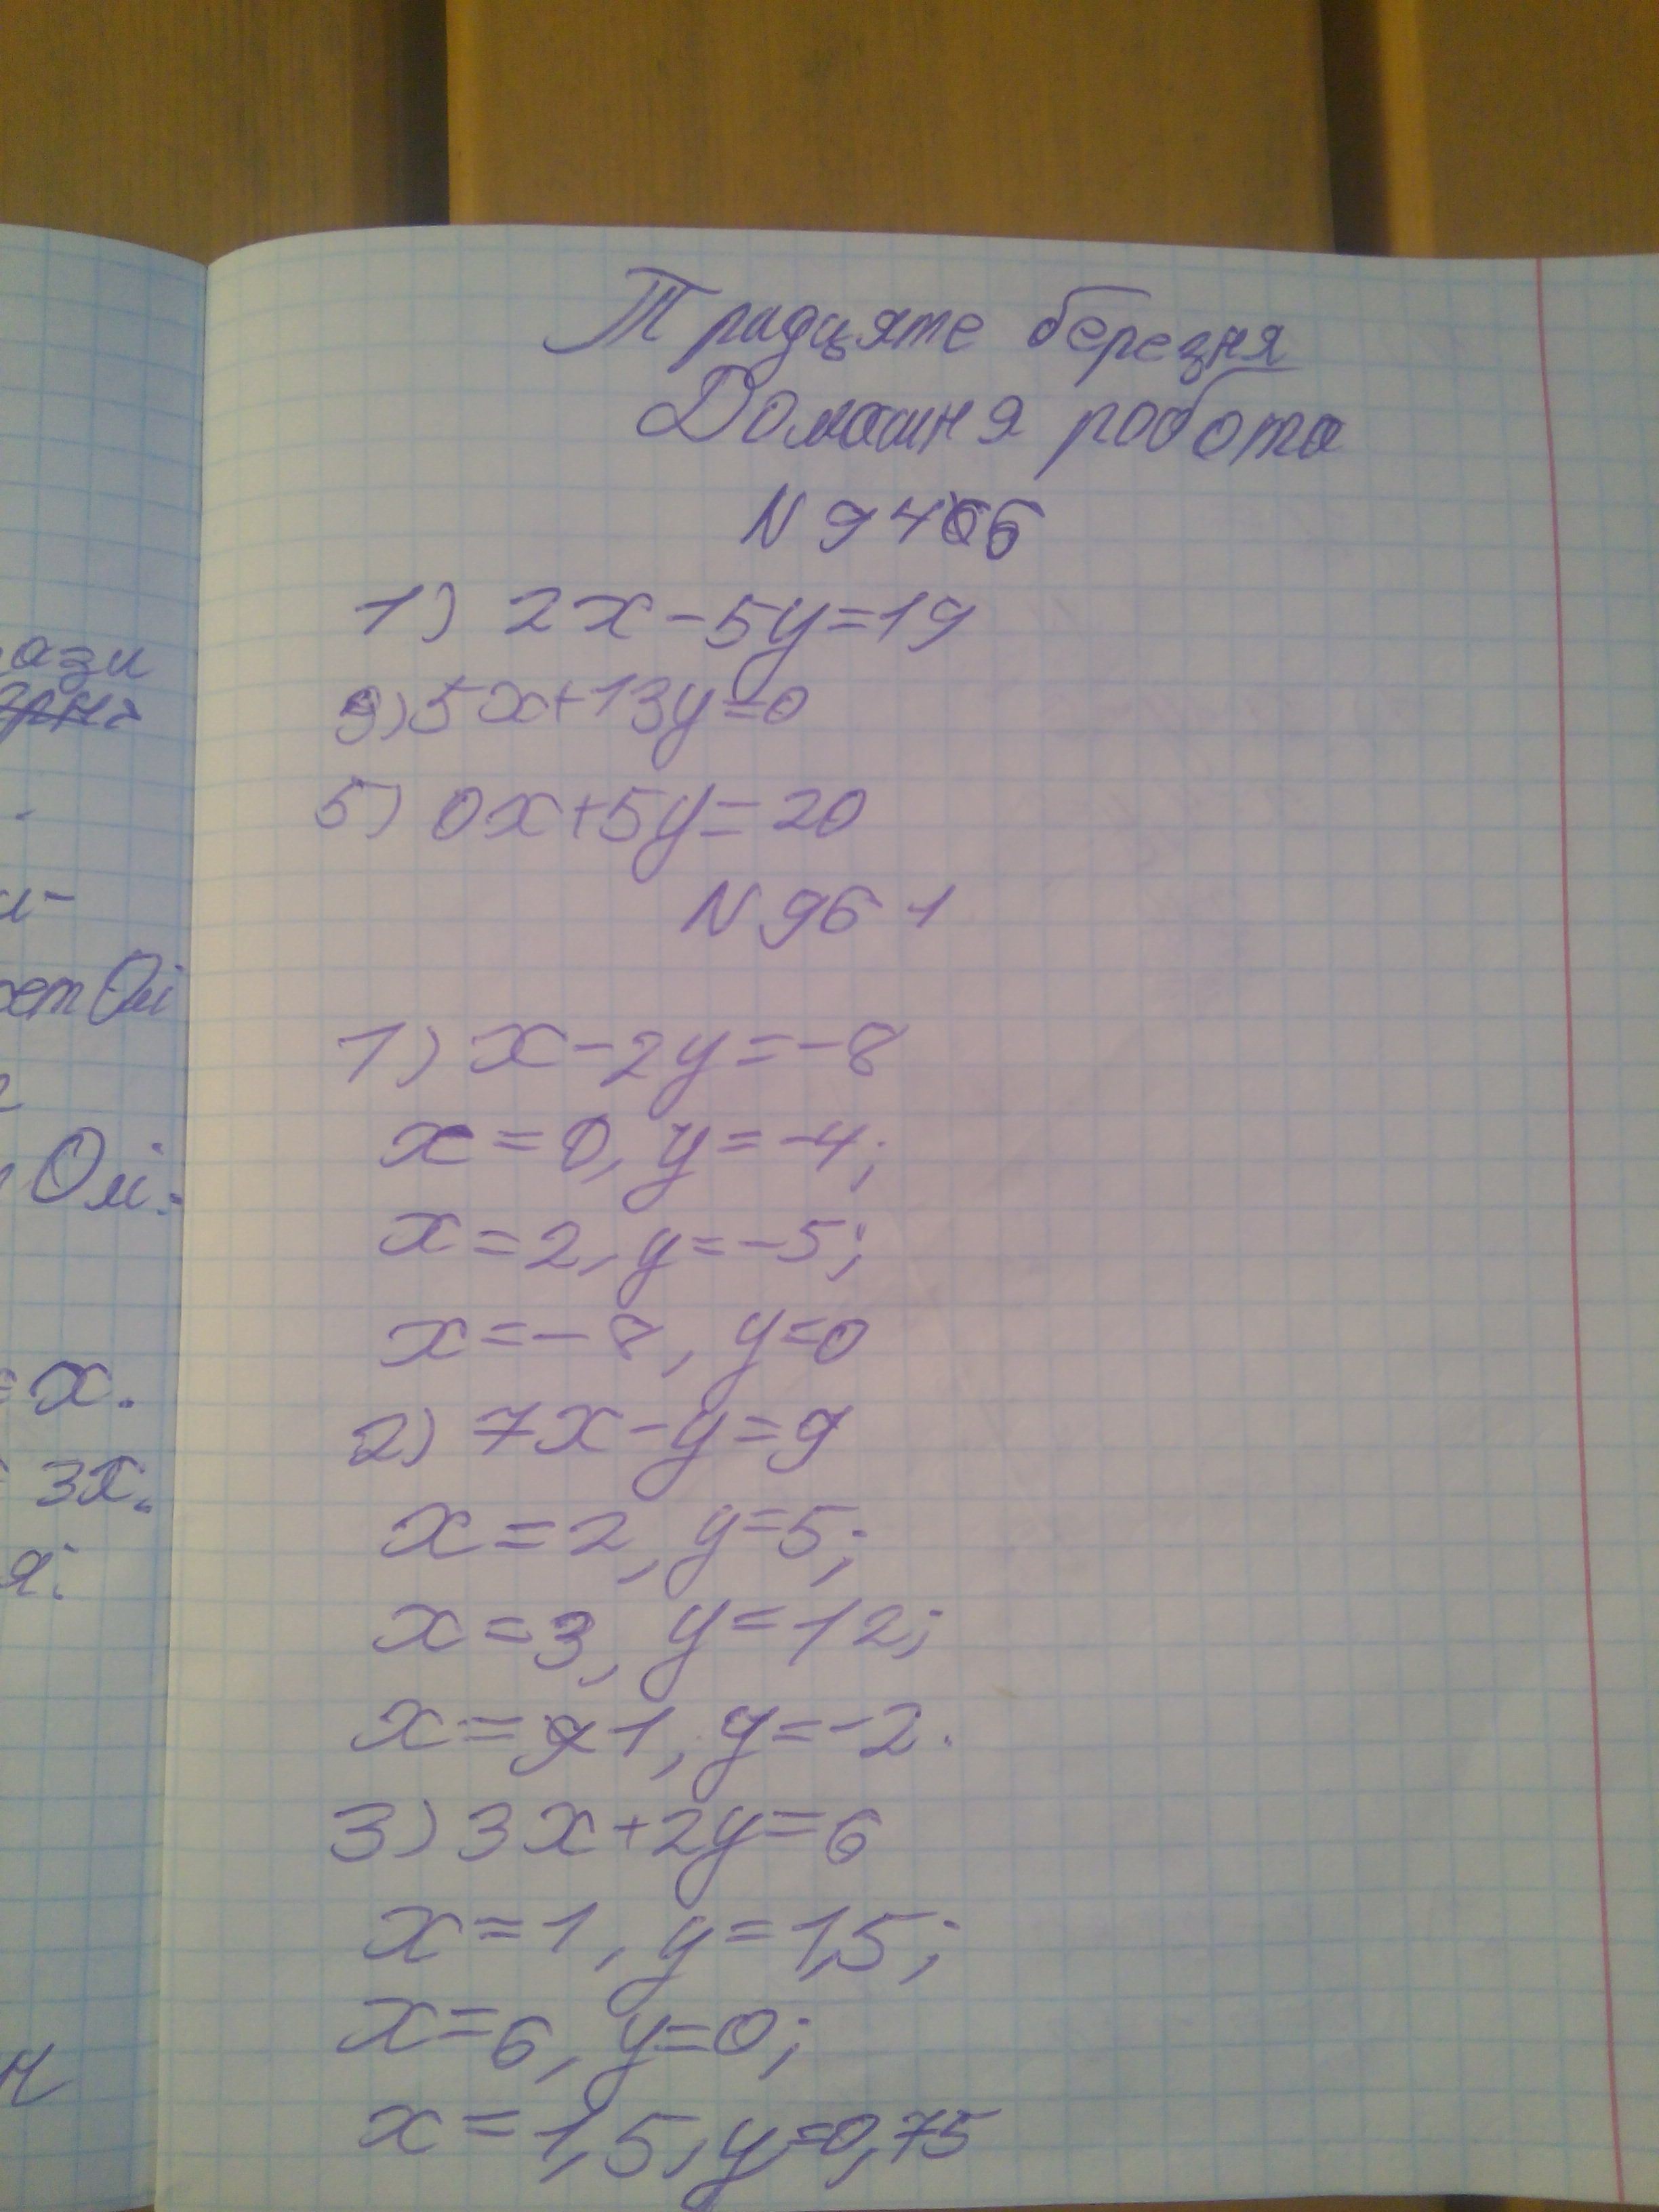 Тридцяте березня
Домашня робота
N 946
1) 2x-5y=19
3) 5x+13y=0
5) 0x+5y=20
N 961
1) x-2y=-8
x=0, y=-4;
x=2, y=-5;
x=-8, y=0
2) 7x-y=9
x=2, y=5;
x=3, y=12;
x=1, y=-2.
3) 3x+2y=6
x=1, y=1,5;
x=6, y=0;
x=1,5, y=0,75